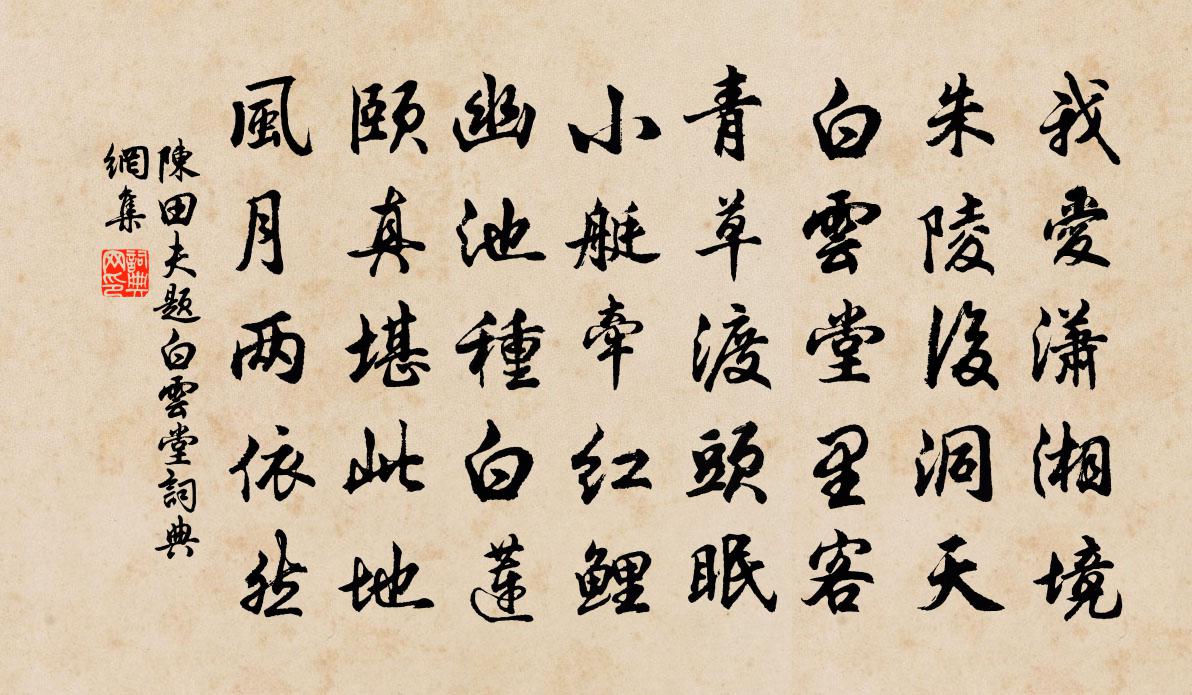 我愛瀟湘境
朱陵後洞天
白雲堂里客
青草渡頭眠
小艇牽紅鯉
幽池種白蓮
頤真堪此地
風月两依然
陳田夫題白雲堂詞典
網集
詞典
网印